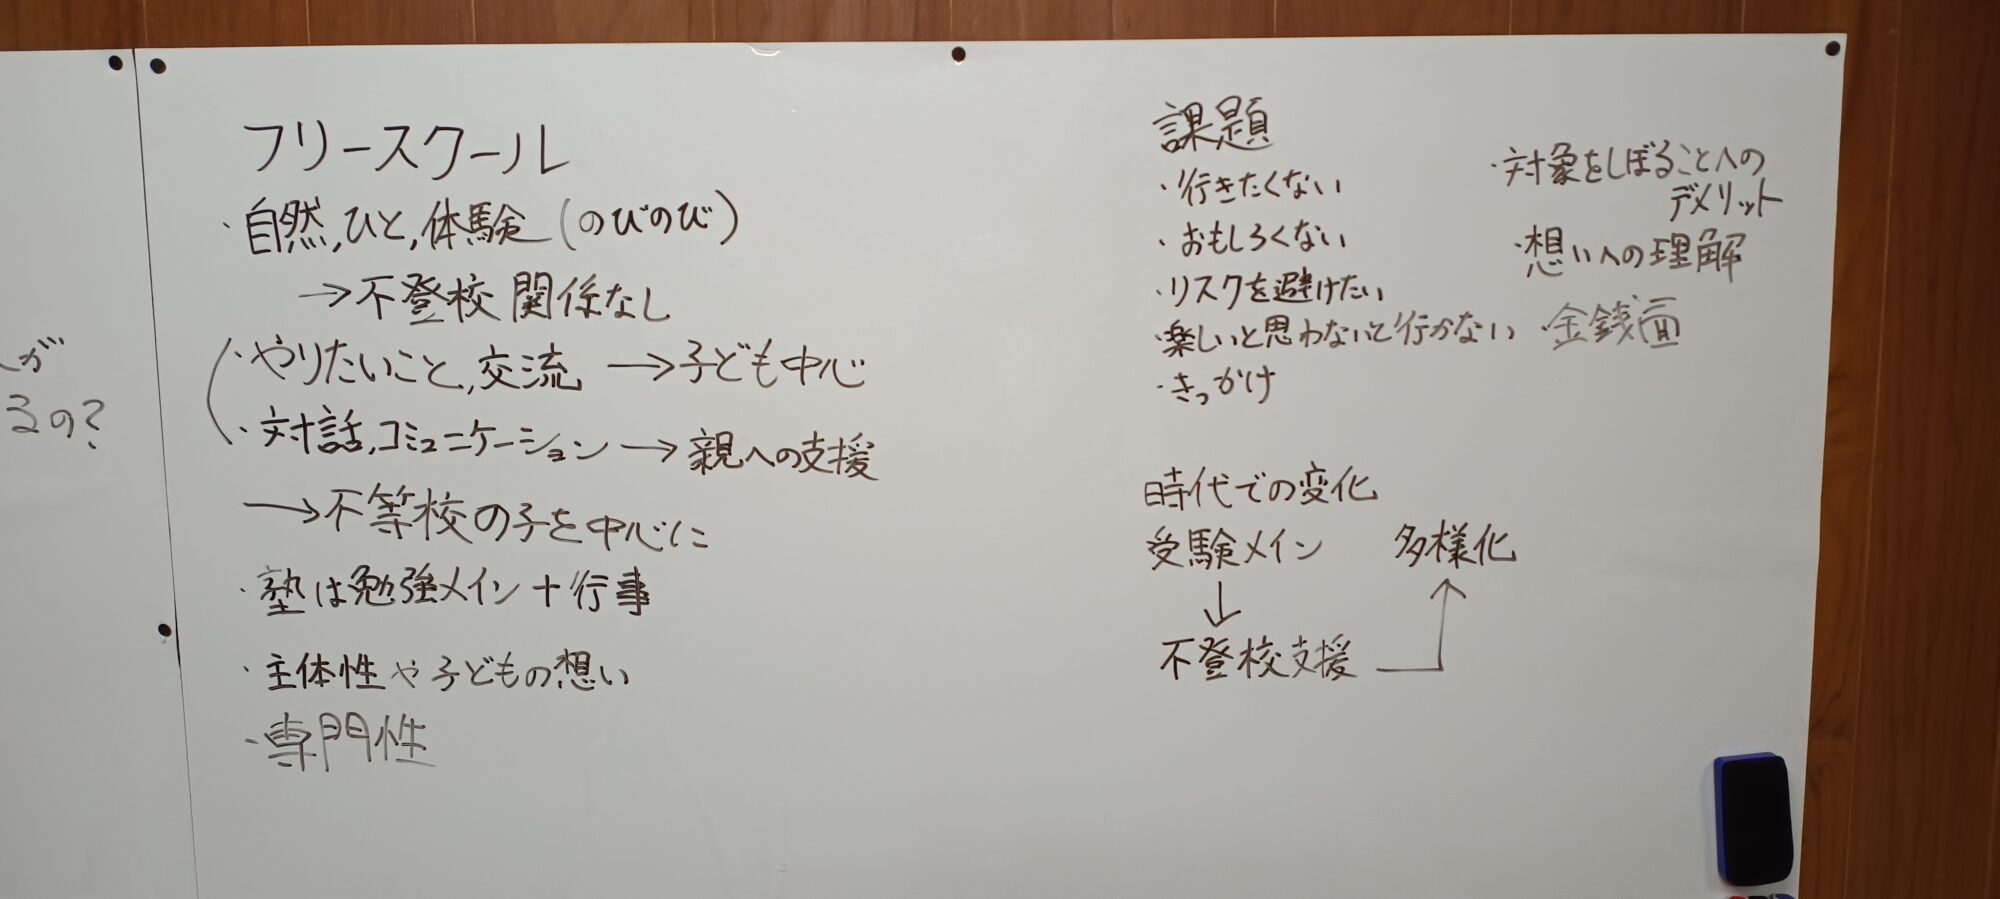 が
るの?
フリースクール
・自然,ひと,体験(のびのび)
→不登校関係なし
・やりたいこと,交流→子ども中心
・対話,コミュニケーション→親への支援
→不等校の子を中心に
・塾は勉強メイン+行事
・主体性や子どもの想い
・専門性
課題
・行きたくない
・おもしろくない
・リスクを避けたい
・楽しいと思わないと行かない
・きっかけ
・対象をしぼることへの
デメリット
・想いへの理解
・金銭面
時代での変化
受験メイン 多様化
↓
不登校支援